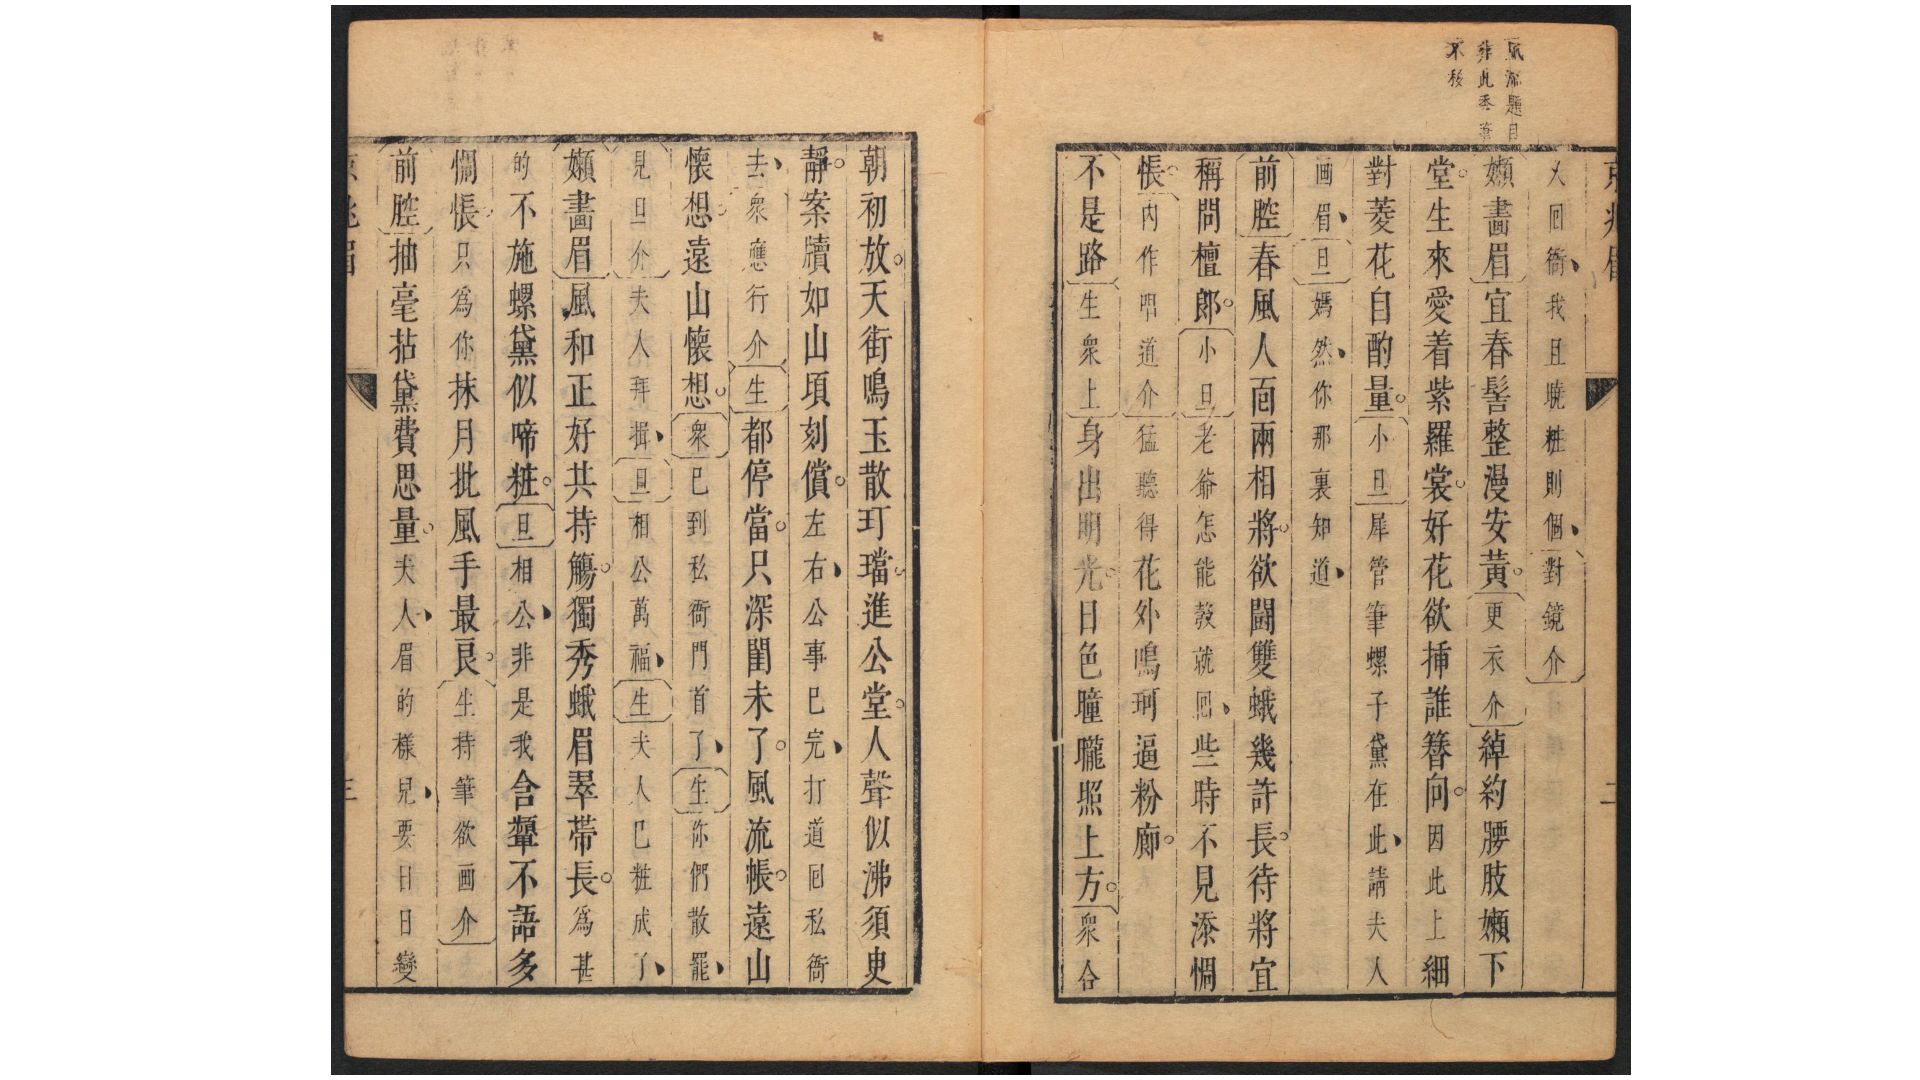 風流題目
非此秀筆
不稱
京兆眉
二
人回衙我且曉粧則個對鏡介
嬾畫眉宜春髻整漫安黃更衣介綽約腰肢嬾下
堂生來愛着紫羅裳好花欲揷誰簪向因此上細
對菱花自酌量小旦犀管筆螺子黛在此請夫人
画眉旦嫣然你那裏知道
前腔春風人面兩相將欲鬬雙蛾幾許長待將宜
稱問檀郎小旦老爺怎能彀就回些時不見添惆
悵內作喝道介猛聽得花外鳴珂逼粉廊
不是路生衆上身出明光日色曈曨照上方衆合
朝初放天街鳴玉散玎璫進公堂人聲似沸須臾
靜案牘如山頃刻償左右公事已完打道回私衙
去衆應行介生都停當只深閨未了風流帳遠山
懷想遠山懷想衆已到私衙門首了生你們散罷
見旦介夫人拜揖旦相公萬福生夫人已粧成了
嬾畫眉風和正好共持觴獨秀蛾眉翠帶長爲甚
的不施螺黛似啼粧旦相公非是我含顰不語多
惆悵只爲你抹月批風手最良生持筆欲画介
前腔抽毫拈黛費思量夫人眉的樣兒要日日變
京兆眉
三